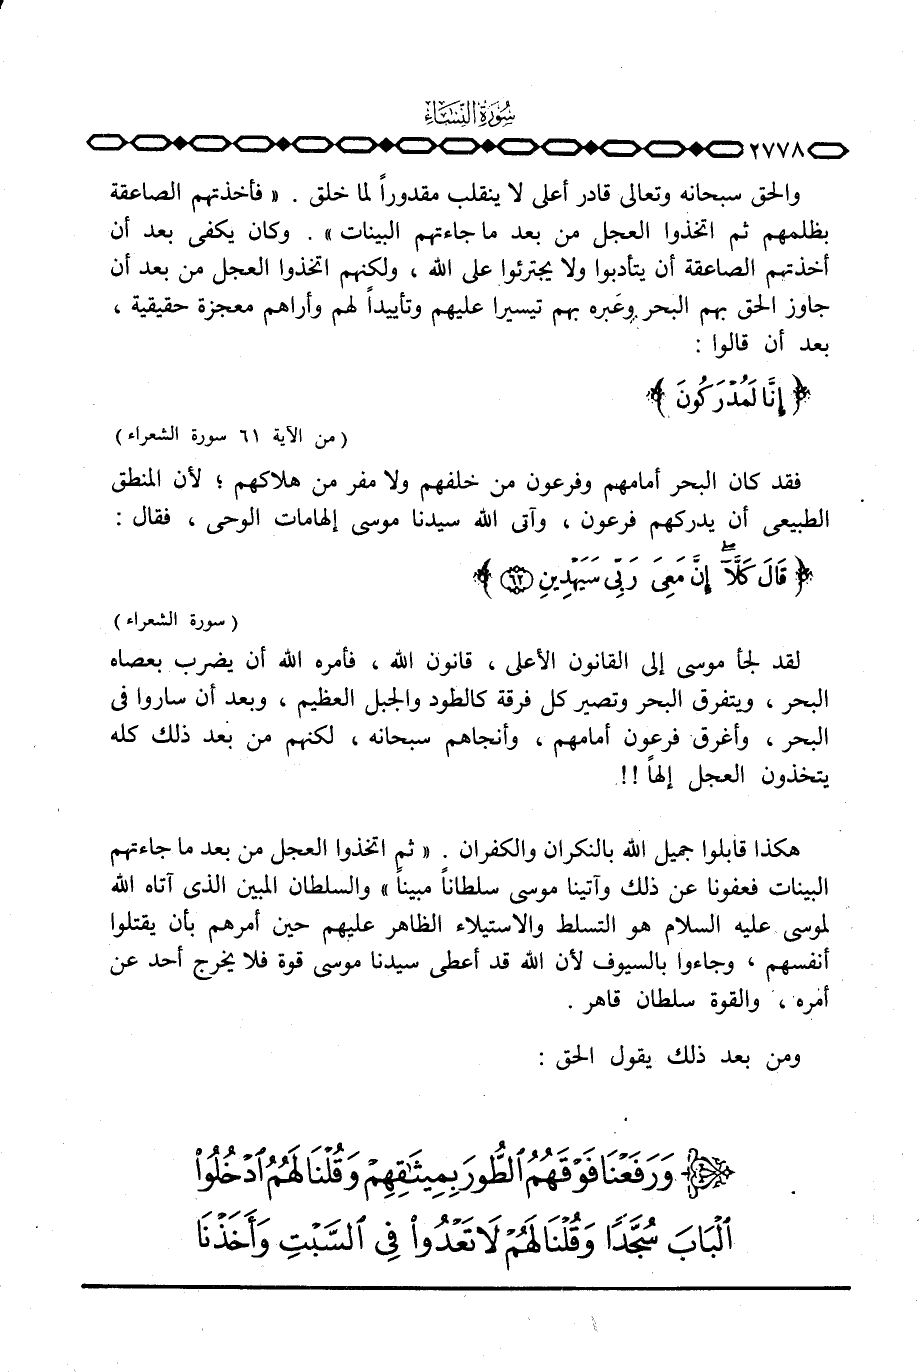 سُورَةُ النِّسَاءِ
٢٧٧٨
والحق سبحانه وتعالى قادر أعلى لا ينقلب مقدوراً لما خلق . « فأخذتهم الصاعقة
بظلمهم ثم اتخذوا العجل من بعد ما جاءتهم البينات » . وكان يكفى بعد أن
أخذتهم الصاعقة أن يتأدبوا ولا يجترئوا على الله ، ولكنهم اتخذوا العجل من بعد أن
جاوز الحق بهم البحر وعَبره بهم تيسيرا عليهم وتأييداً لهم وأراهم معجزة حقيقية ،
بعد أن قالوا :
﴿ إِنَّا لَمُدْرَكُونَ ﴾
( من الآية ٦١ سورة الشعراء )
فقد كان البحر أمامهم وفرعون من خلفهم ولا مفر من هلاكهم ؛ لأن المنطق
الطبيعى أن يدركهم فرعون ، وآتى الله سيدنا موسى إلهامات الوحى ، فقال :
﴿ قَالَ كَلَّآ ۖ إِنَّ مَعِىَ رَبِّى سَيَهْدِينِ ٦٢ ﴾
( سورة الشعراء )
لقد لجأ موسى إلى القانون الأعلى ، قانون الله ، فأمره الله أن يضرب بعصاه
البحر ، ويتفرق البحر وتصير كل فرقة كالطود والجبل العظيم ، وبعد أن ساروا فى
البحر ، وأغرق فرعون أمامهم ، وأنجاهم سبحانه ، لكنهم من بعد ذلك كله
يتخذون العجل إلهاً !!
هكذا قابلوا جميل الله بالنكران والكفران . « ثم اتخذوا العجل من بعد ما جاءتهم
البينات فعفونا عن ذلك وآتينا موسى سلطاناً مبيناً » والسلطان المبين الذى آتاه الله
لموسى عليه السلام هو التسلط والاستيلاء الظاهر عليهم حين أمرهم بأن يقتلوا
أنفسهم ، وجاءوا بالسيوف لأن الله قد أعطى سيدنا موسى قوة فلا يخرج أحد عن
أمره ، والقوة سلطان قاهر .
ومن بعد ذلك يقول الحق :
﴿ وَرَفَعْنَا فَوْقَهُمُ ٱلطُّورَ بِمِيثَٰقِهِمْ وَقُلْنَا لَهُمُ ٱدْخُلُوا۟
ٱلْبَابَ سُجَّدًا وَقُلْنَا لَهُمْ لَا تَعْدُوا۟ فِى ٱلسَّبْتِ وَأَخَذْنَا